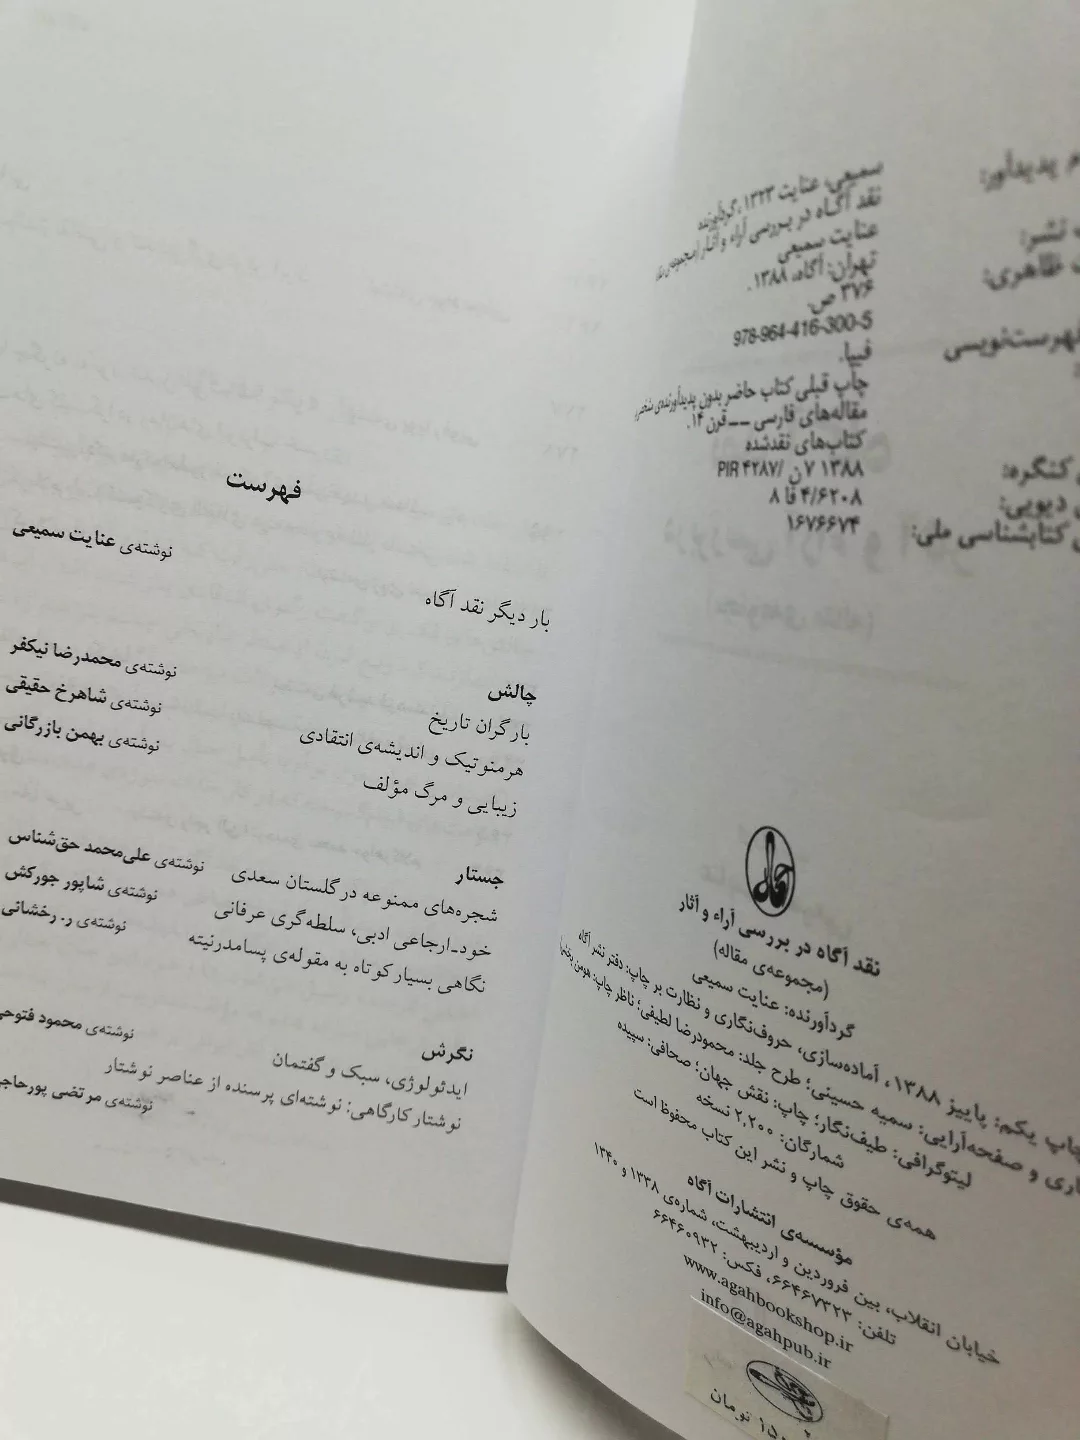 م پدیدآور:
سمیعی، عنایت ۱۳۲۳، گردآورنده
نقد آگاه در بررسی آراء و آثار
عنایت سمیعی
نشر:
تهران: آگاه، ۱۳۸۸.
ظاهری:
۳۷۶ ص.
978-964-416-300-5
فهرست‌نویسی
فیپا.
چاپ قبلی کتاب حاضر بدون پدیدآورنده‌ی شخص
مقاله‌های فارسی -- قرن ۱۴.
کتاب‌های نقدشده
کنگره:
PIR ۴۲۸۷/ ن۷ ۱۳۸۸
دیویی:
۸ فا ۴/۶۲۰۸
کتابشناسی ملی:
۱۶۷۶۶۷۴
نقد آگاه در بررسی آراء و آثار
(مجموعه‌ی مقاله)
گردآورنده: عنایت سمیعی
چاپ یکم: پاییز ۱۳۸۸، آماده‌سازی، حروف‌نگاری و نظارت بر چاپ: دفتر نشر آگاه
اری و صفحه‌آرایی: سمیه حسینی؛ طرح جلد: محمودرضا لطیفی؛ ناظر چاپ: هومن
لیتوگرافی: طیف‌نگار؛ چاپ: نقش جهان؛ صحافی: سپیده
شمارگان: ۲,۲۰۰ نسخه
همه‌ی حقوق چاپ و نشر این کتاب محفوظ است
مؤسسه‌ی انتشارات آگاه
خیابان انقلاب، بین فروردین و اردیبهشت، شماره‌ی ۱۳۳۸ و ۱۳۴۰
تلفن: ۶۶۴۶۷۳۲۳، فکس: ۶۶۴۶۰۹۳۲
www.agahbookshop.ir
info@agahpub.ir
تومان
فهرست
بار دیگر نقد آگاه نوشته‌ی عنایت سمیعی
چالش
بار گران تاریخ نوشته‌ی محمدرضا نیکفر
هرمنوتیک و اندیشه‌ی انتقادی نوشته‌ی شاهرخ حقیقی
زیبایی و مرگ مؤلف نوشته‌ی بهمن بازرگانی
جستار
شجره‌های ممنوعه در گلستان سعدی نوشته‌ی علی‌محمد حق‌شناس
خود-ارجاعی ادبی، سلطه‌گری عرفانی نوشته‌ی شاپور جورکش
نگاهی بسیار کوتاه به مقوله‌ی پسامدرنیته نوشته‌ی ر. رخشانی
نگرش
ایدئولوژی، سبک و گفتمان نوشته‌ی محمود فتوحی
نوشتار کارگاهی: نوشته‌ای پرسنده از عناصر نوشتار نوشته‌ی مرتضی پورحاج